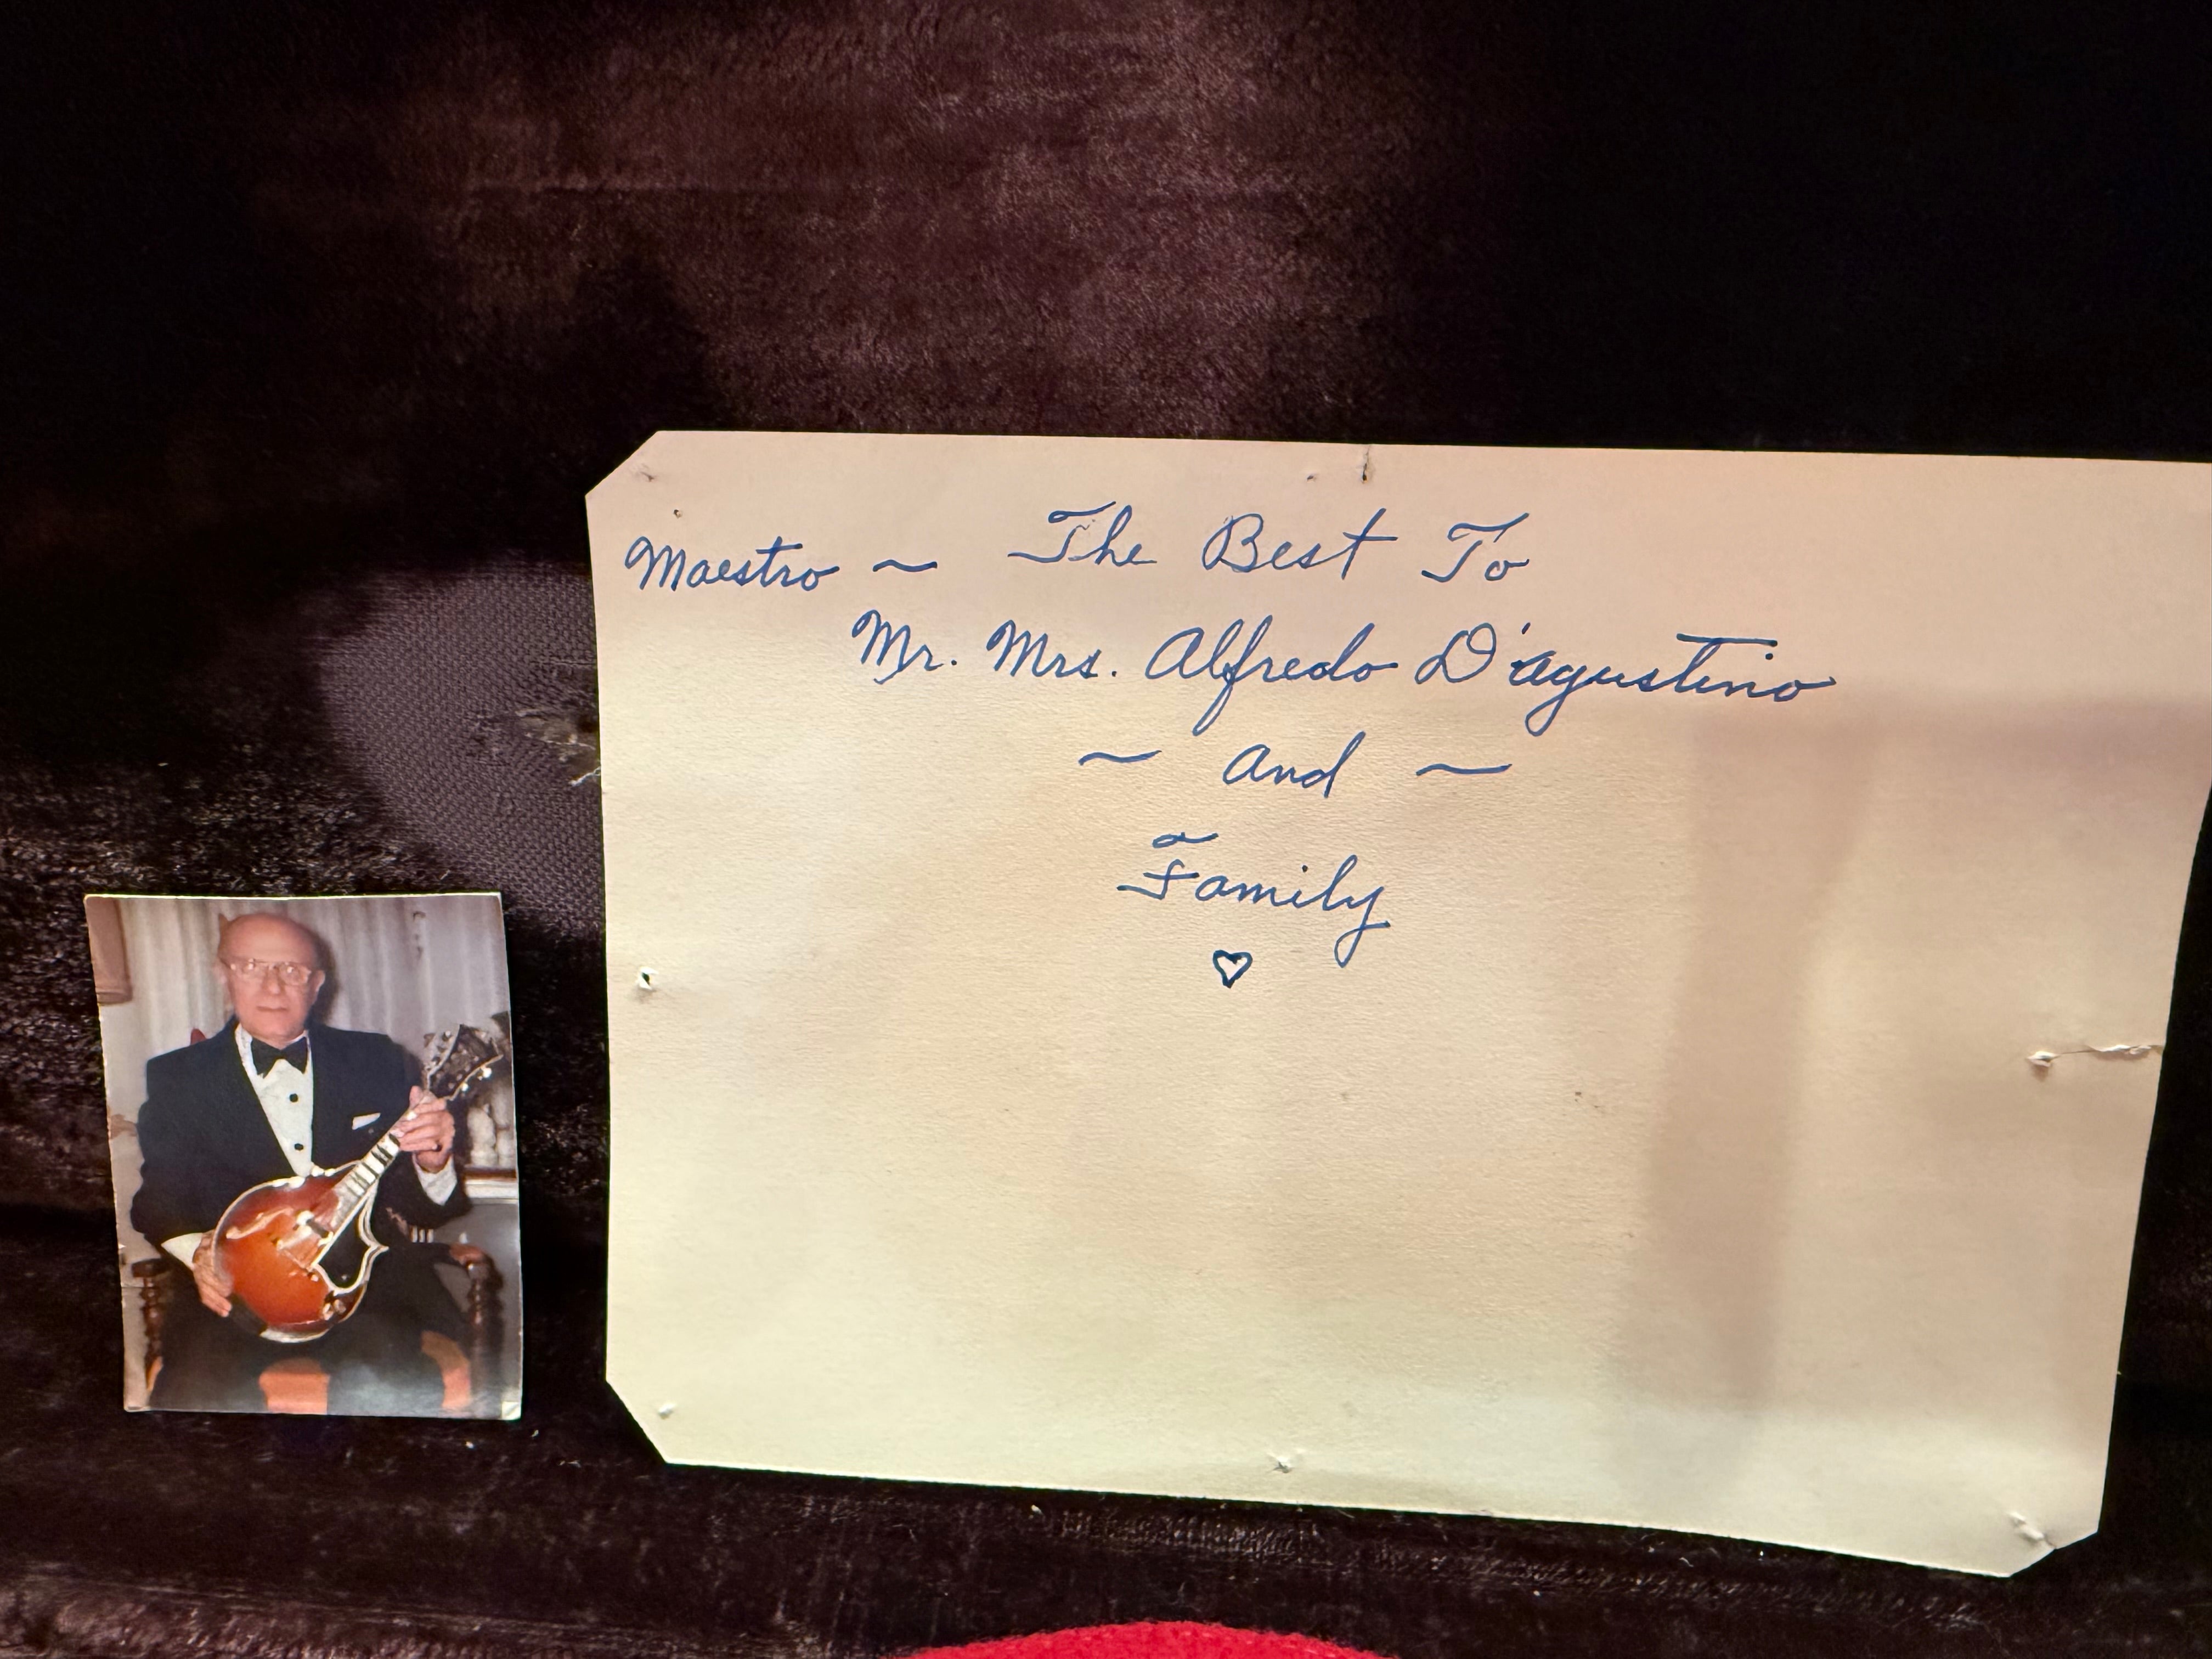 Maestro ~ The Best To
Mr. Mrs. Alfredo D'agustino
~ and ~
Family
♡